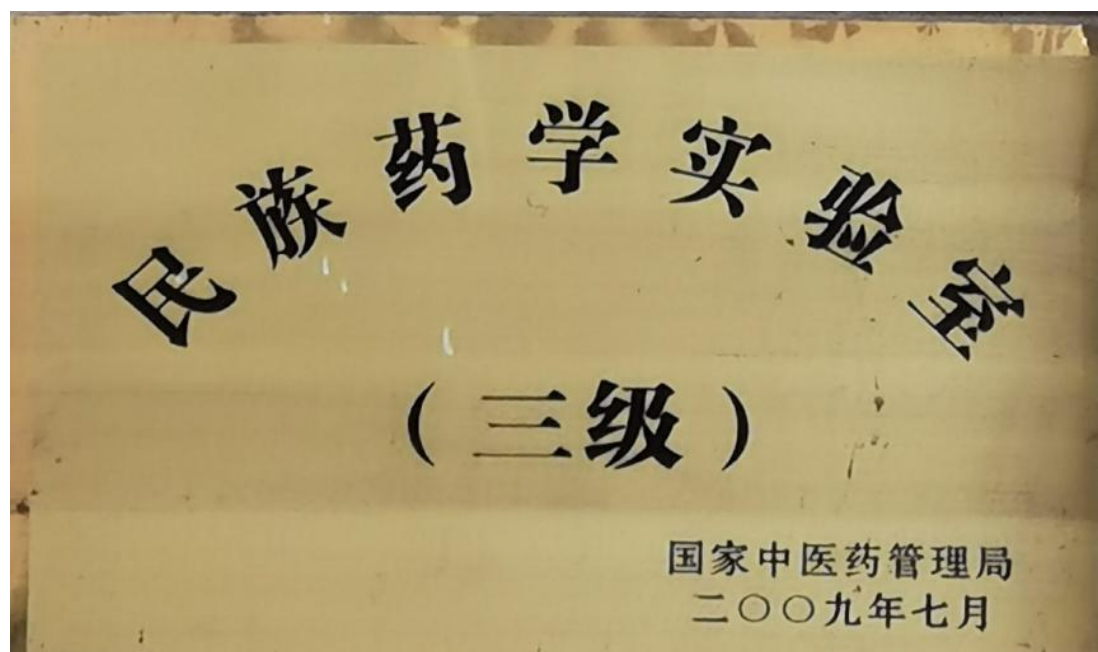 民族药学实验室
（三级）
国家中医药管理局
二〇〇九年七月